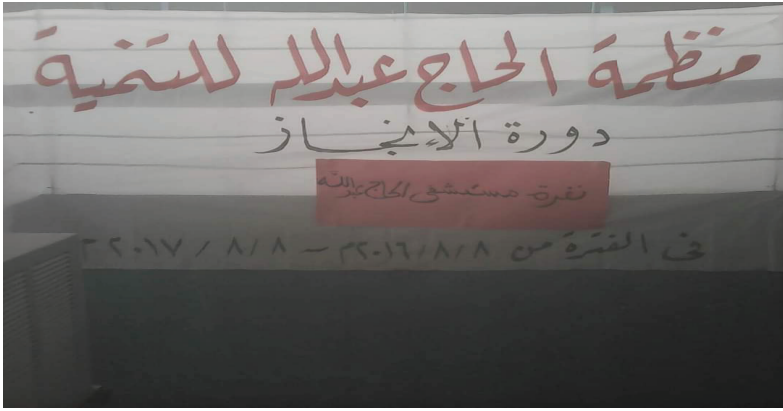 منظمة الحاج عبدالله للتنمية
دورة الإنجاز
نفرة مستشفى الحاج عبدالله
في الفترة من ٢٠١٦/٨/٨م - ٢٠١٧/٨/٨